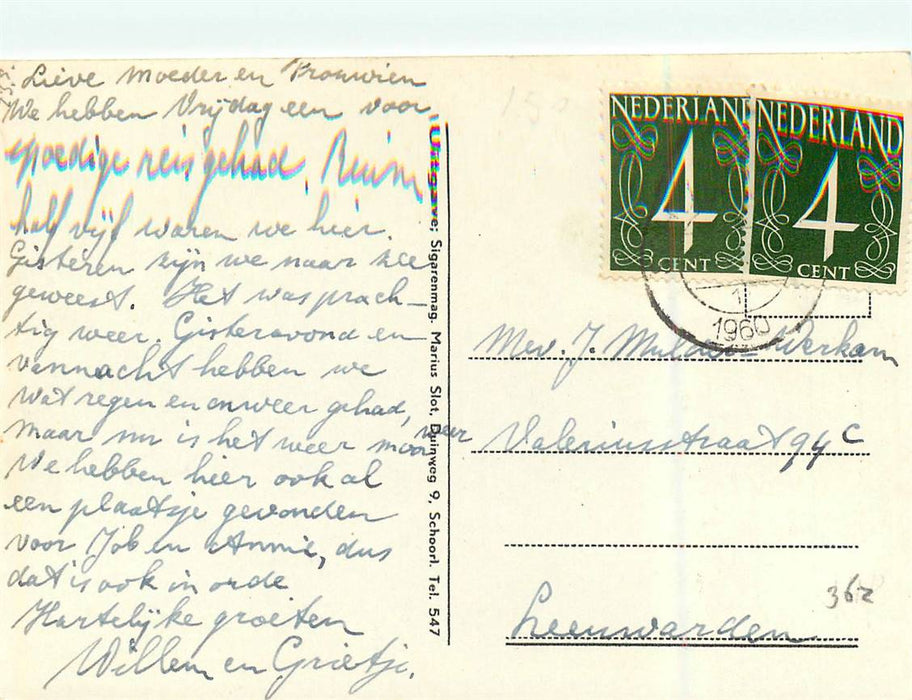 Lieve Moeder en
We hebben Vrijdag een voor
spoedige reis gehad. Ruim
half vijf waren we hier.
Gisteren zijn we naar zee
geweest. Het was prach-
tig weer. Gisteravond en
vannacht hebben we
wat regen en onweer gehad,
maar nu is het weer mooi weer
We hebben hier ook al
een plaatsje gevonden
voor Job en Annie, dus
dat is ook in orde
Hartelijke groeten
Willem en Grietje.
Uitgave; Sigarenmag. Marius Slot, Duinweg 9, Schoorl. Tel. 547
NEDERLAND
4
CENT
NEDERLAND
4
CENT
1960
Mev. J. Mulder-Werkam
Valeriusstraat 94 c
Leeuwarden
362